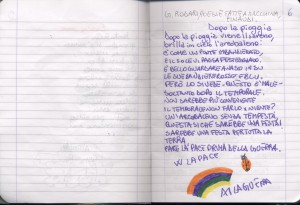 6
Dopo la pioggia
Dopo la pioggia viene il sereno,
brilla in cielo l'arcobaleno:
È COME UN PONTE IMBANDIERATO
E IL SOLE VI PASSA FESTEGGIATO.
È BELLO GUARDARE A NASO IN SU
LE SUE BANDIERE ROSSE E BLU.
PERÒ LO SI VEDE - QUESTO È IL MALE -
SOLTANTO DOPO IL TEMPORALE.
NON SAREBBE PIÙ CONVENIENTE
IL TEMPORALE NON FARLO PER NIENTE?
UN ARCOBALENO SENZA TEMPESTA,
QUESTA SÌ CHE SAREBBE UNA FESTA.
SAREBBE UNA FESTA PER TUTTA LA
TERRA
FARE LA PACE PRIMA DELLA GUERRA.
LA PACE
LA GUERRA